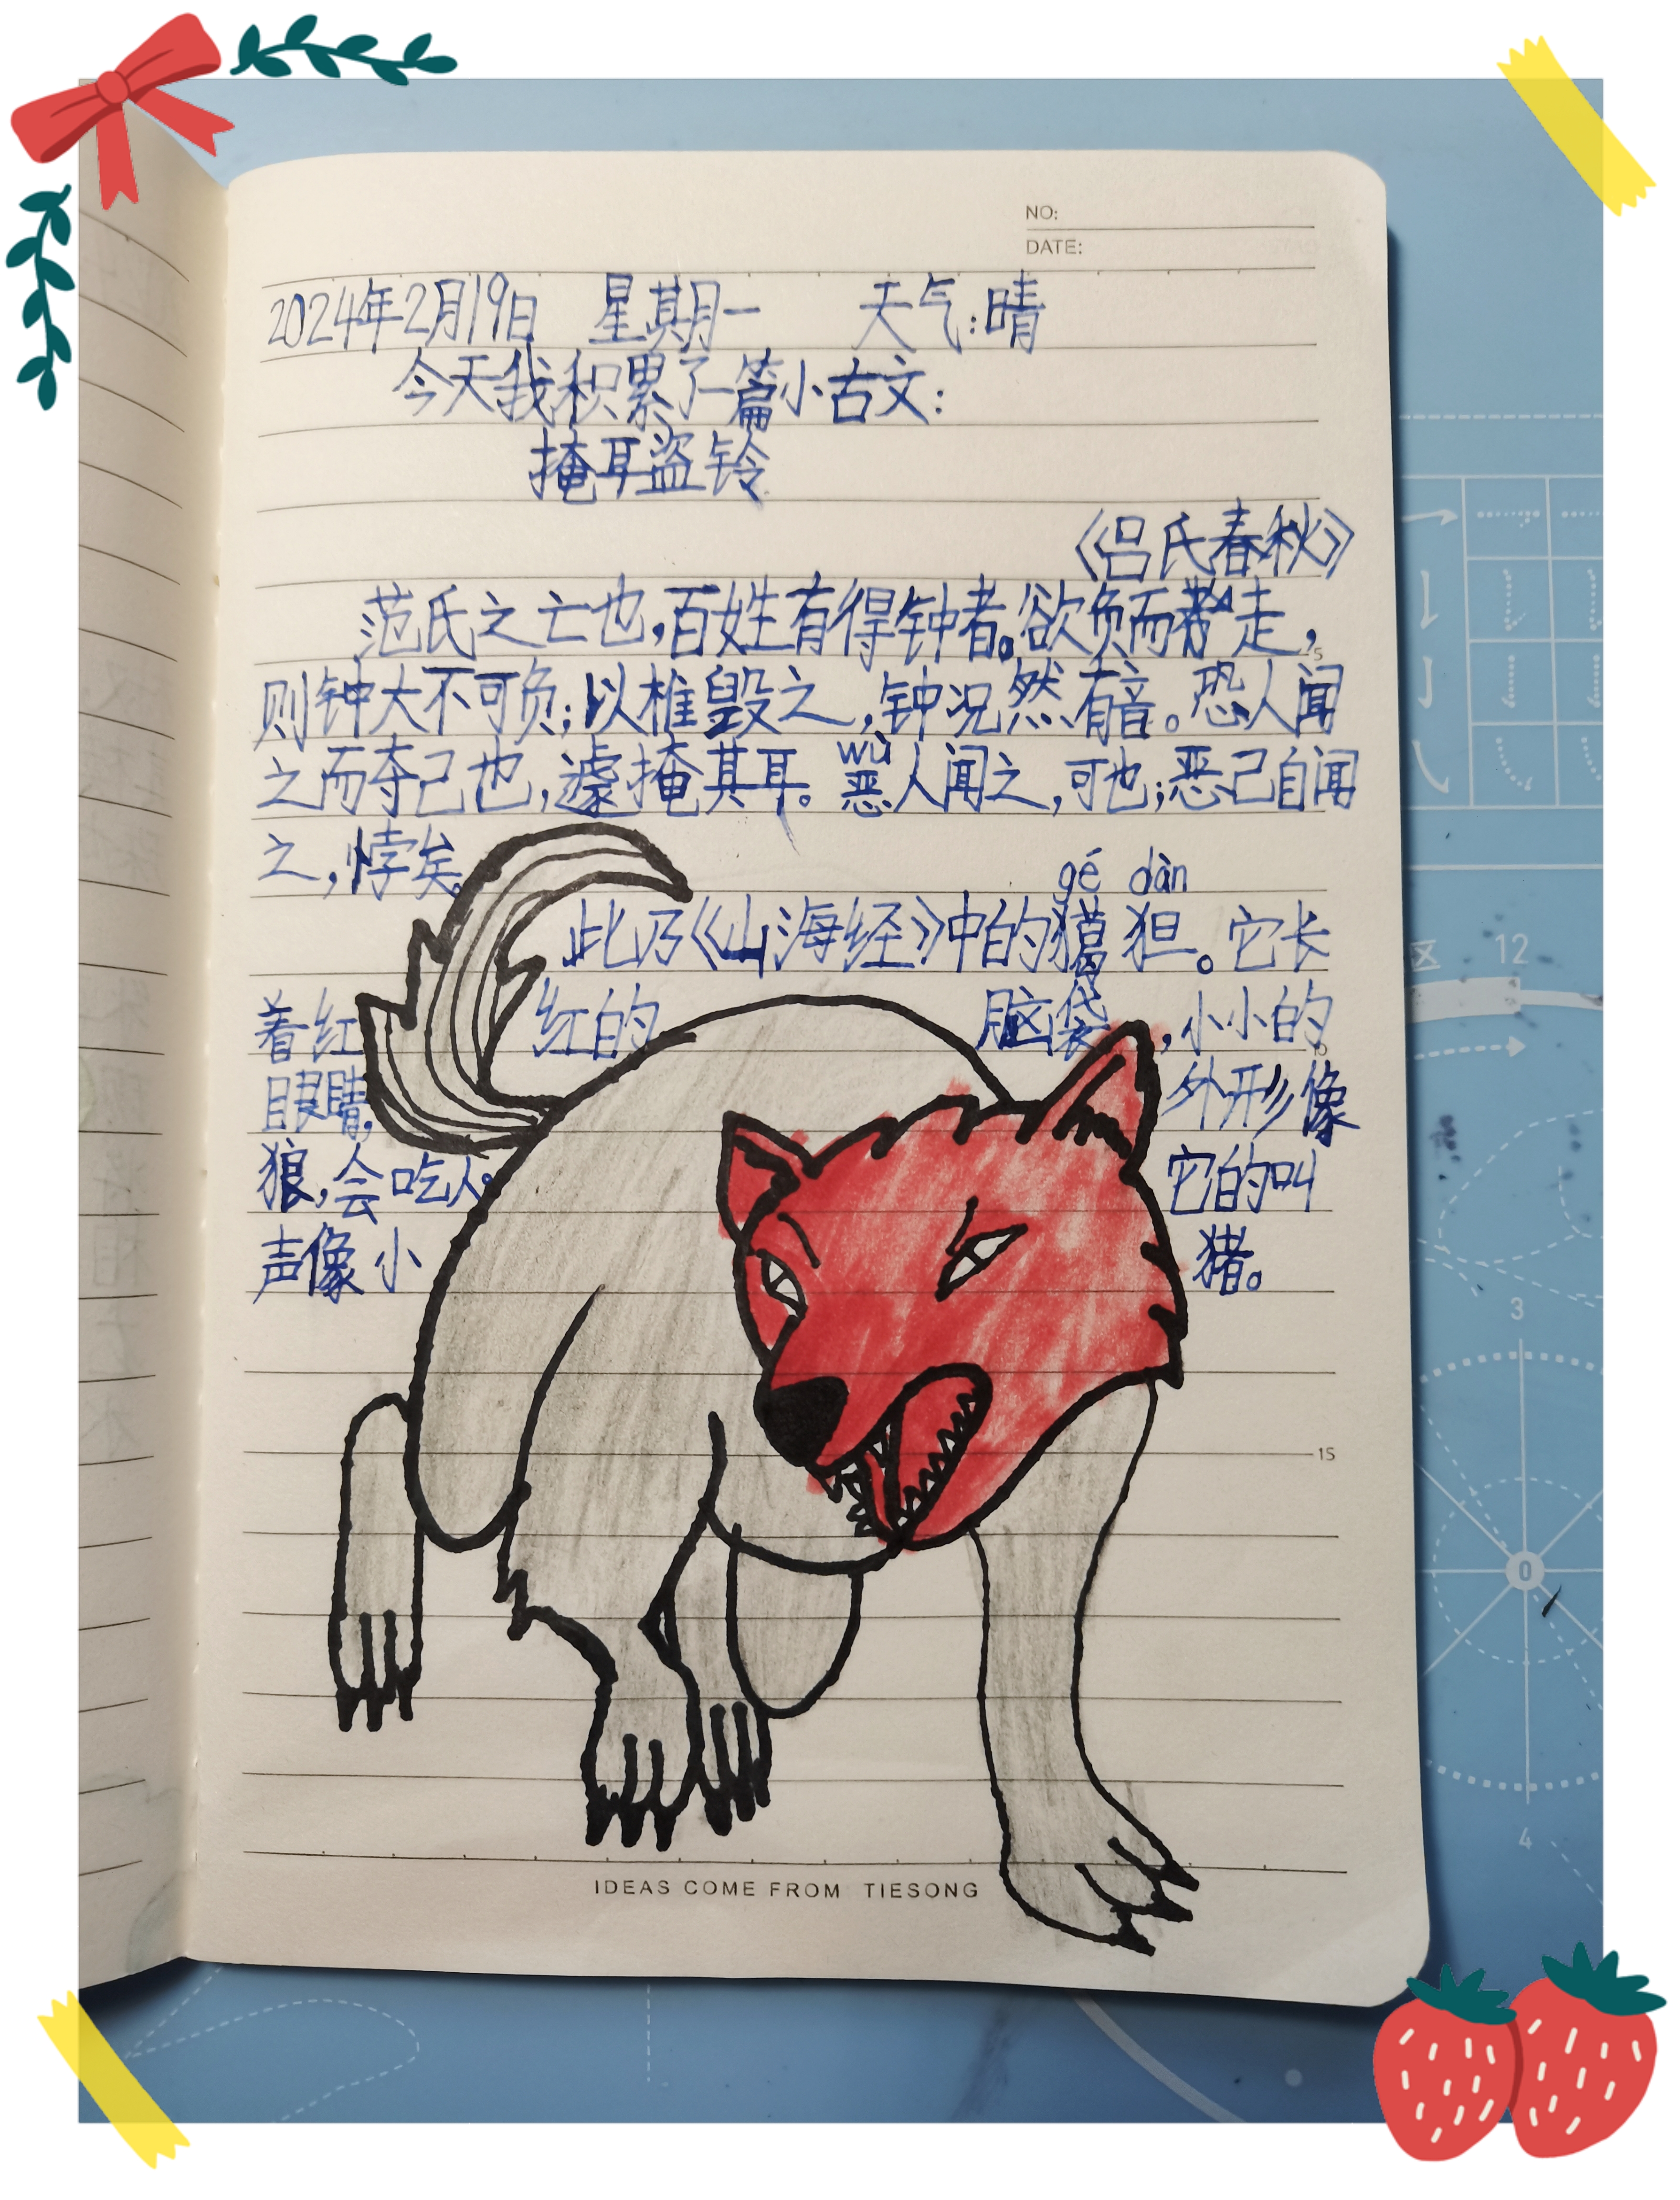 NO:
DATE:
2024年2月19日 星期一 天气:晴
今天我积累了一篇小古文:
掩耳盗铃
《吕氏春秋》
范氏之亡也,百姓有得钟者。欲负而走,
则钟大不可负;以椎毁之,钟况然有音。恐人闻
之而夺己也,遽掩其耳。恶人闻之,可也;恶己自闻
wù
之,悖矣。
gé dàn
此乃《山海经》中的猲狚。它长
着红红的脑袋,小小的
眼睛,外形像
狼,会吃人。它的叫
声像小猪。
5
10
15
IDEAS COME FROM TIESONG
区 12
3
0
4